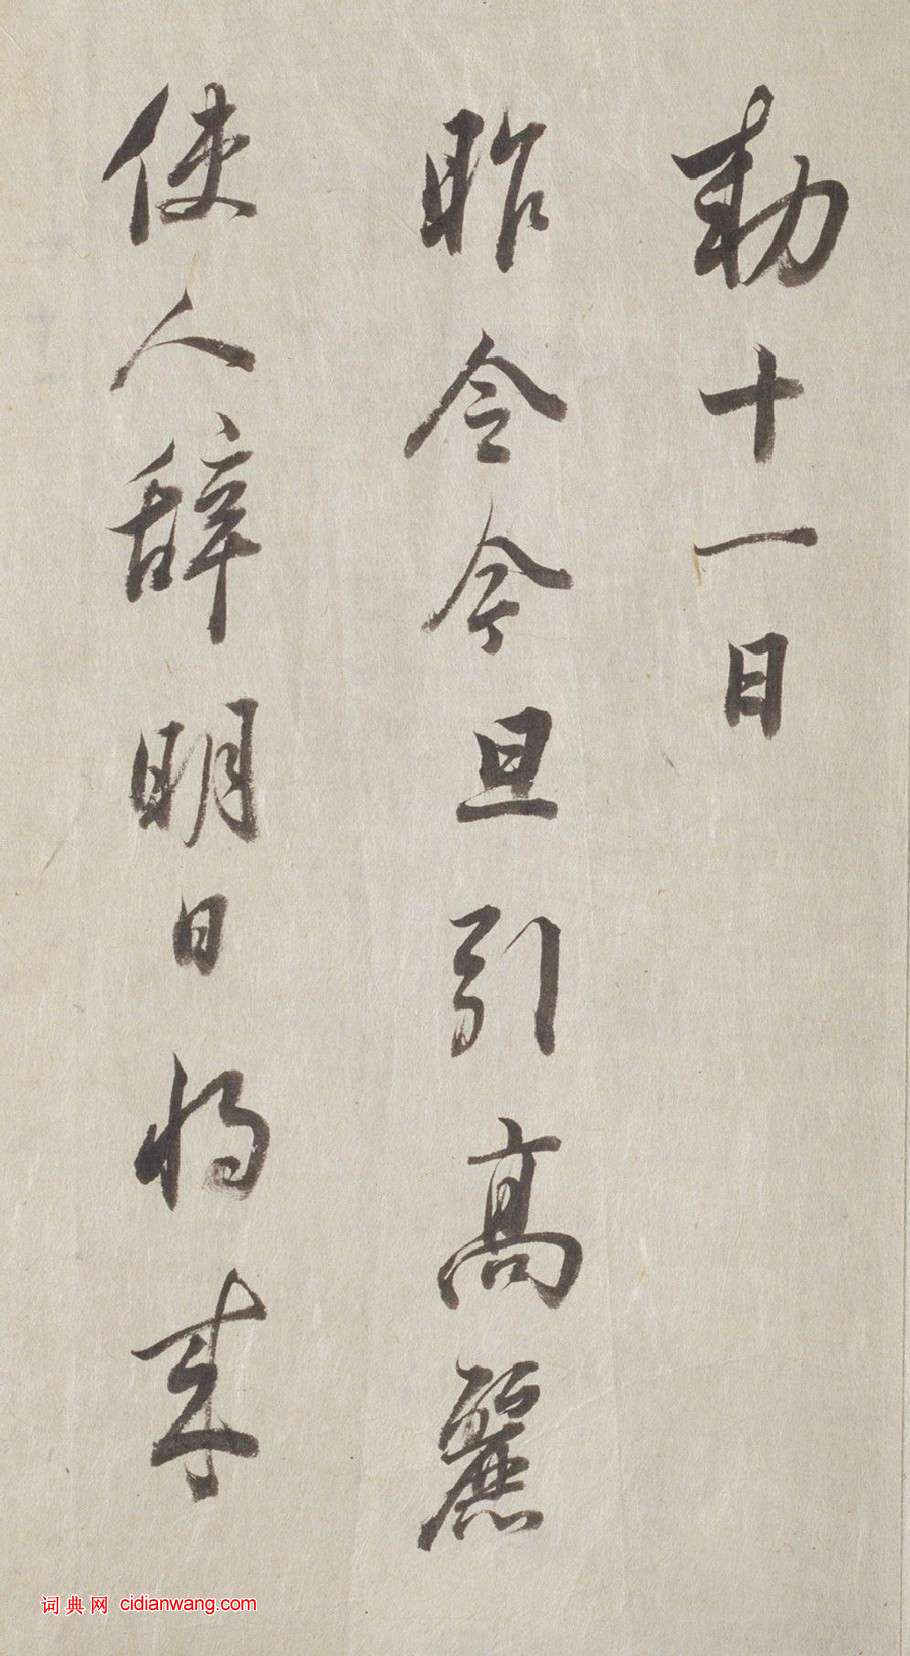 勅十一日
昨令今旦引高麗
使人辞明日将来
词典网 cidianwang.com